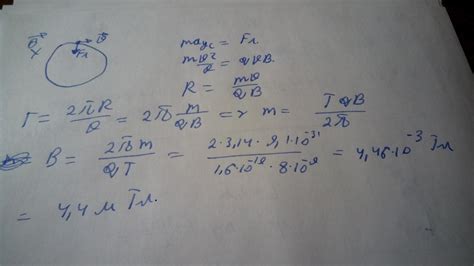 B⃗ x υ⃗ Fл
maцс = Fл.
mυ²/R = qυB.
R = mυ/qB
T = 2πR/υ = 2π m/qB => m = TqB/2π
B = 2πm/qT = 2·3,14·9,1·10⁻³¹/1,6·10⁻¹⁹·8·10⁻⁹ = 4,46·10⁻³ Тл
= 4,4 мТл.